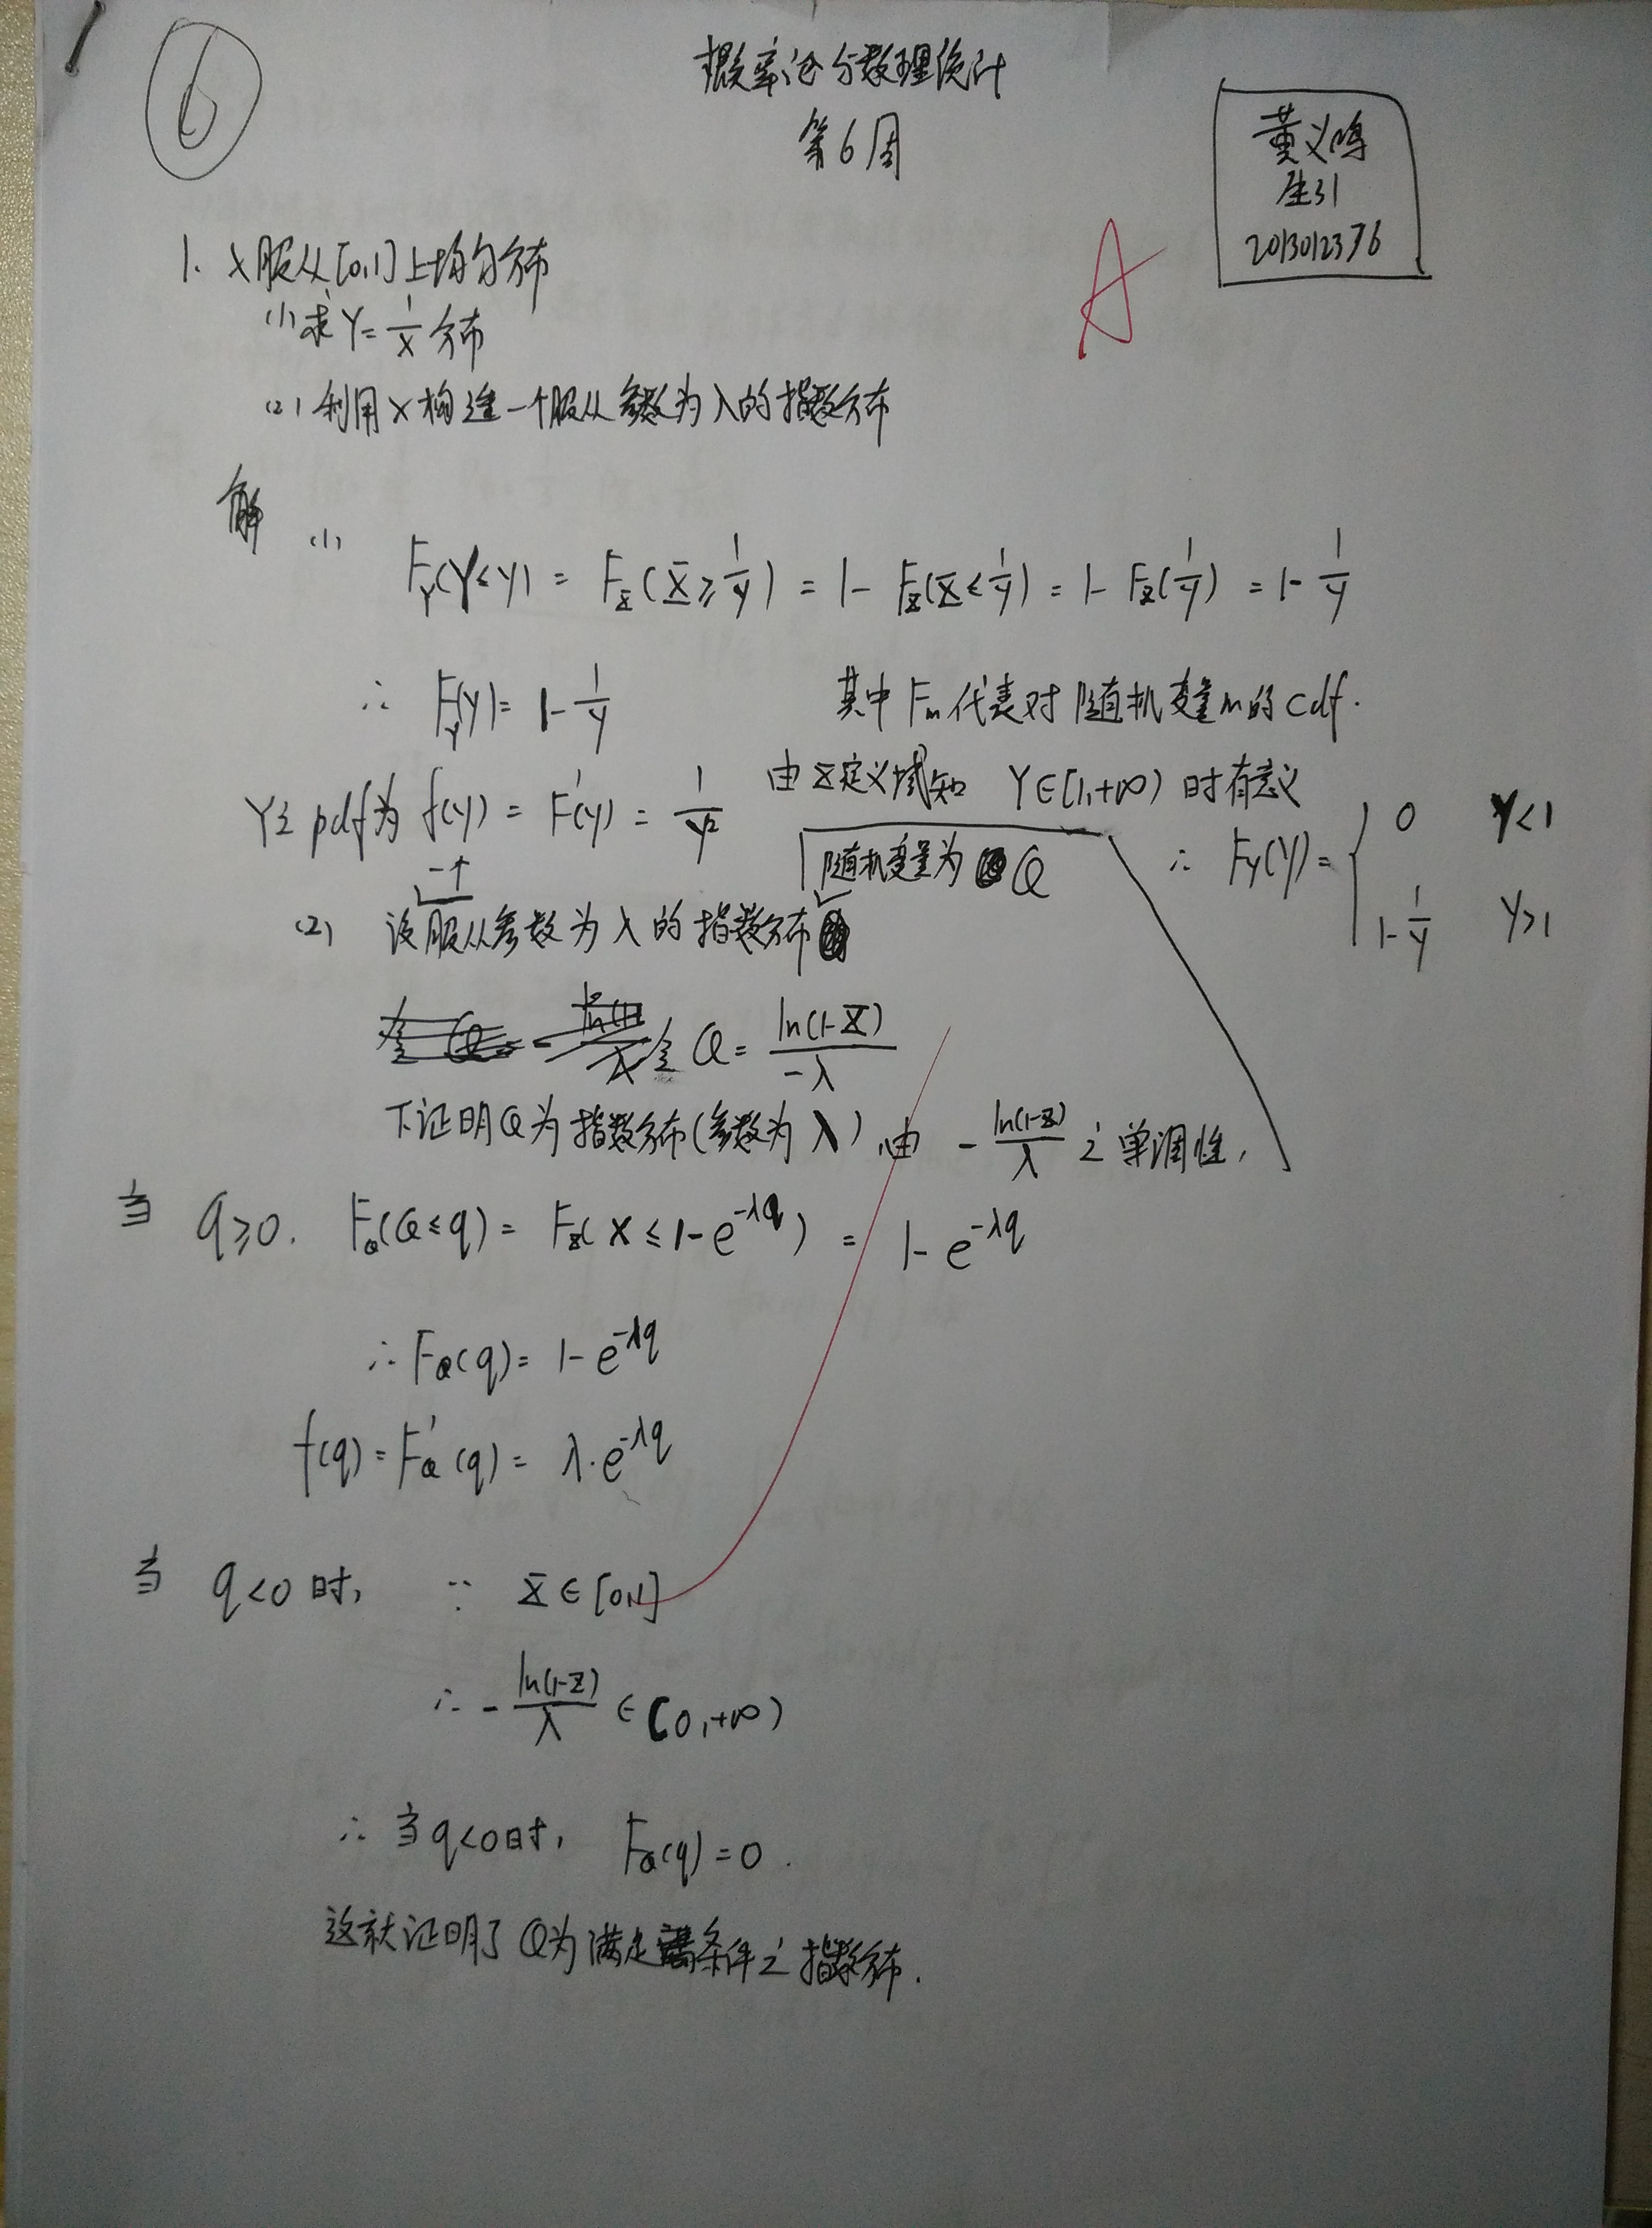 ⑥
概率论与数理统计
第6周
董义鸣
生31
2013012376
A
1. X服从[0,1]上均匀分布
(1) 求Y=1/X分布
(2) 利用X构造一个服从参数为λ的指数分布
解 (1) F_Y(Y≤y) = F_X(X≥1/y) = 1-F_X(X≤1/y) = 1-F_X(1/y) = 1-1/y
∴ F_Y(y) = 1-1/y 其中F_m代表对随机变量m的cdf.
由X定义域知 Y∈[1,+∞) 时有意义
Y之pdf为 f(y) = F'(y) = 1/y²
∴ F_Y(Y) = { 0 Y<1
1-1/y Y>1
(2) 设服从参数为λ的指数分布随机变量为Q
令 Q = ln(1-X)/-λ
下证明Q为指数分布(参数为λ) 由 -ln(1-X)/λ 之单调性,
当 q≥0. F_Q(Q≤q) = F_X(X≤1-e^{-λq}) = 1-e^{-λq}
∴ F_Q(q) = 1-e^{-λq}
f(q) = F_Q'(q) = λ·e^{-λq}
当 q<0时, ∵ X∈[0,1]
∴ -ln(1-X)/λ ∈ [0,+∞)
∴ 当q<0时, F_Q(q)=0.
这就证明了Q为满足条件之指数分布.